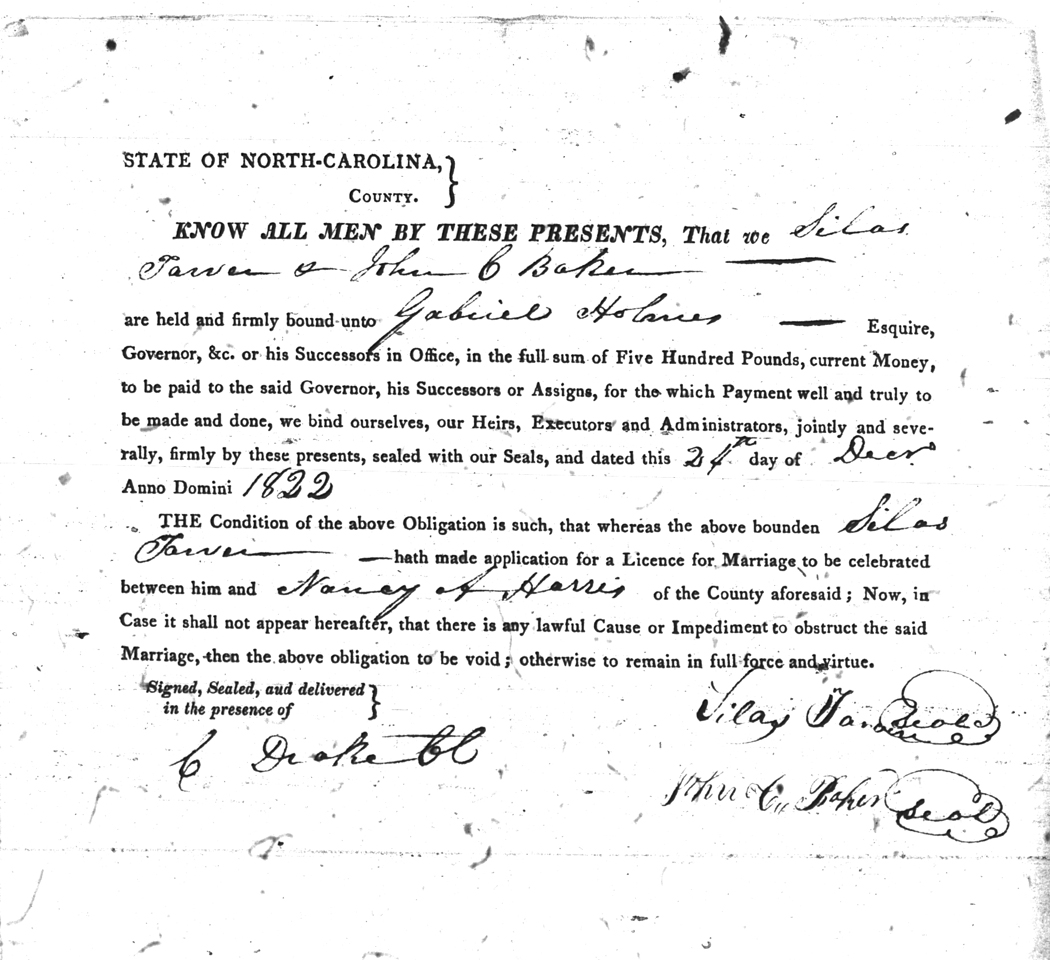 STATE OF NORTH-CAROLINA, }
COUNTY.
KNOW ALL MEN BY THESE PRESENTS, That we Silas
Tarver & John C Baker
are held and firmly bound unto Gabriel Holmes — Esquire,
Governor, &c. or his Successors in Office, in the full sum of Five Hundred Pounds, current Money,
to be paid to the said Governor, his Successors or Assigns, for the which Payment well and truly to
be made and done, we bind ourselves, our Heirs, Executors and Administrators, jointly and seve-
rally, firmly by these presents, sealed with our Seals, and dated this 24th day of Decr
Anno Domini 1822
THE Condition of the above Obligation is such, that whereas the above bounden Silas
Tarver — hath made application for a Licence for Marriage to be celebrated
between him and Nancy A Harris of the County aforesaid; Now, in
Case it shall not appear hereafter, that there is any lawful Cause or Impediment to obstruct the said
Marriage, then the above obligation to be void; otherwise to remain in full force and virtue.
Signed, Sealed, aud delivered }
in the presence of
Silas Seal
C Drake CC
John C. Baker Seal